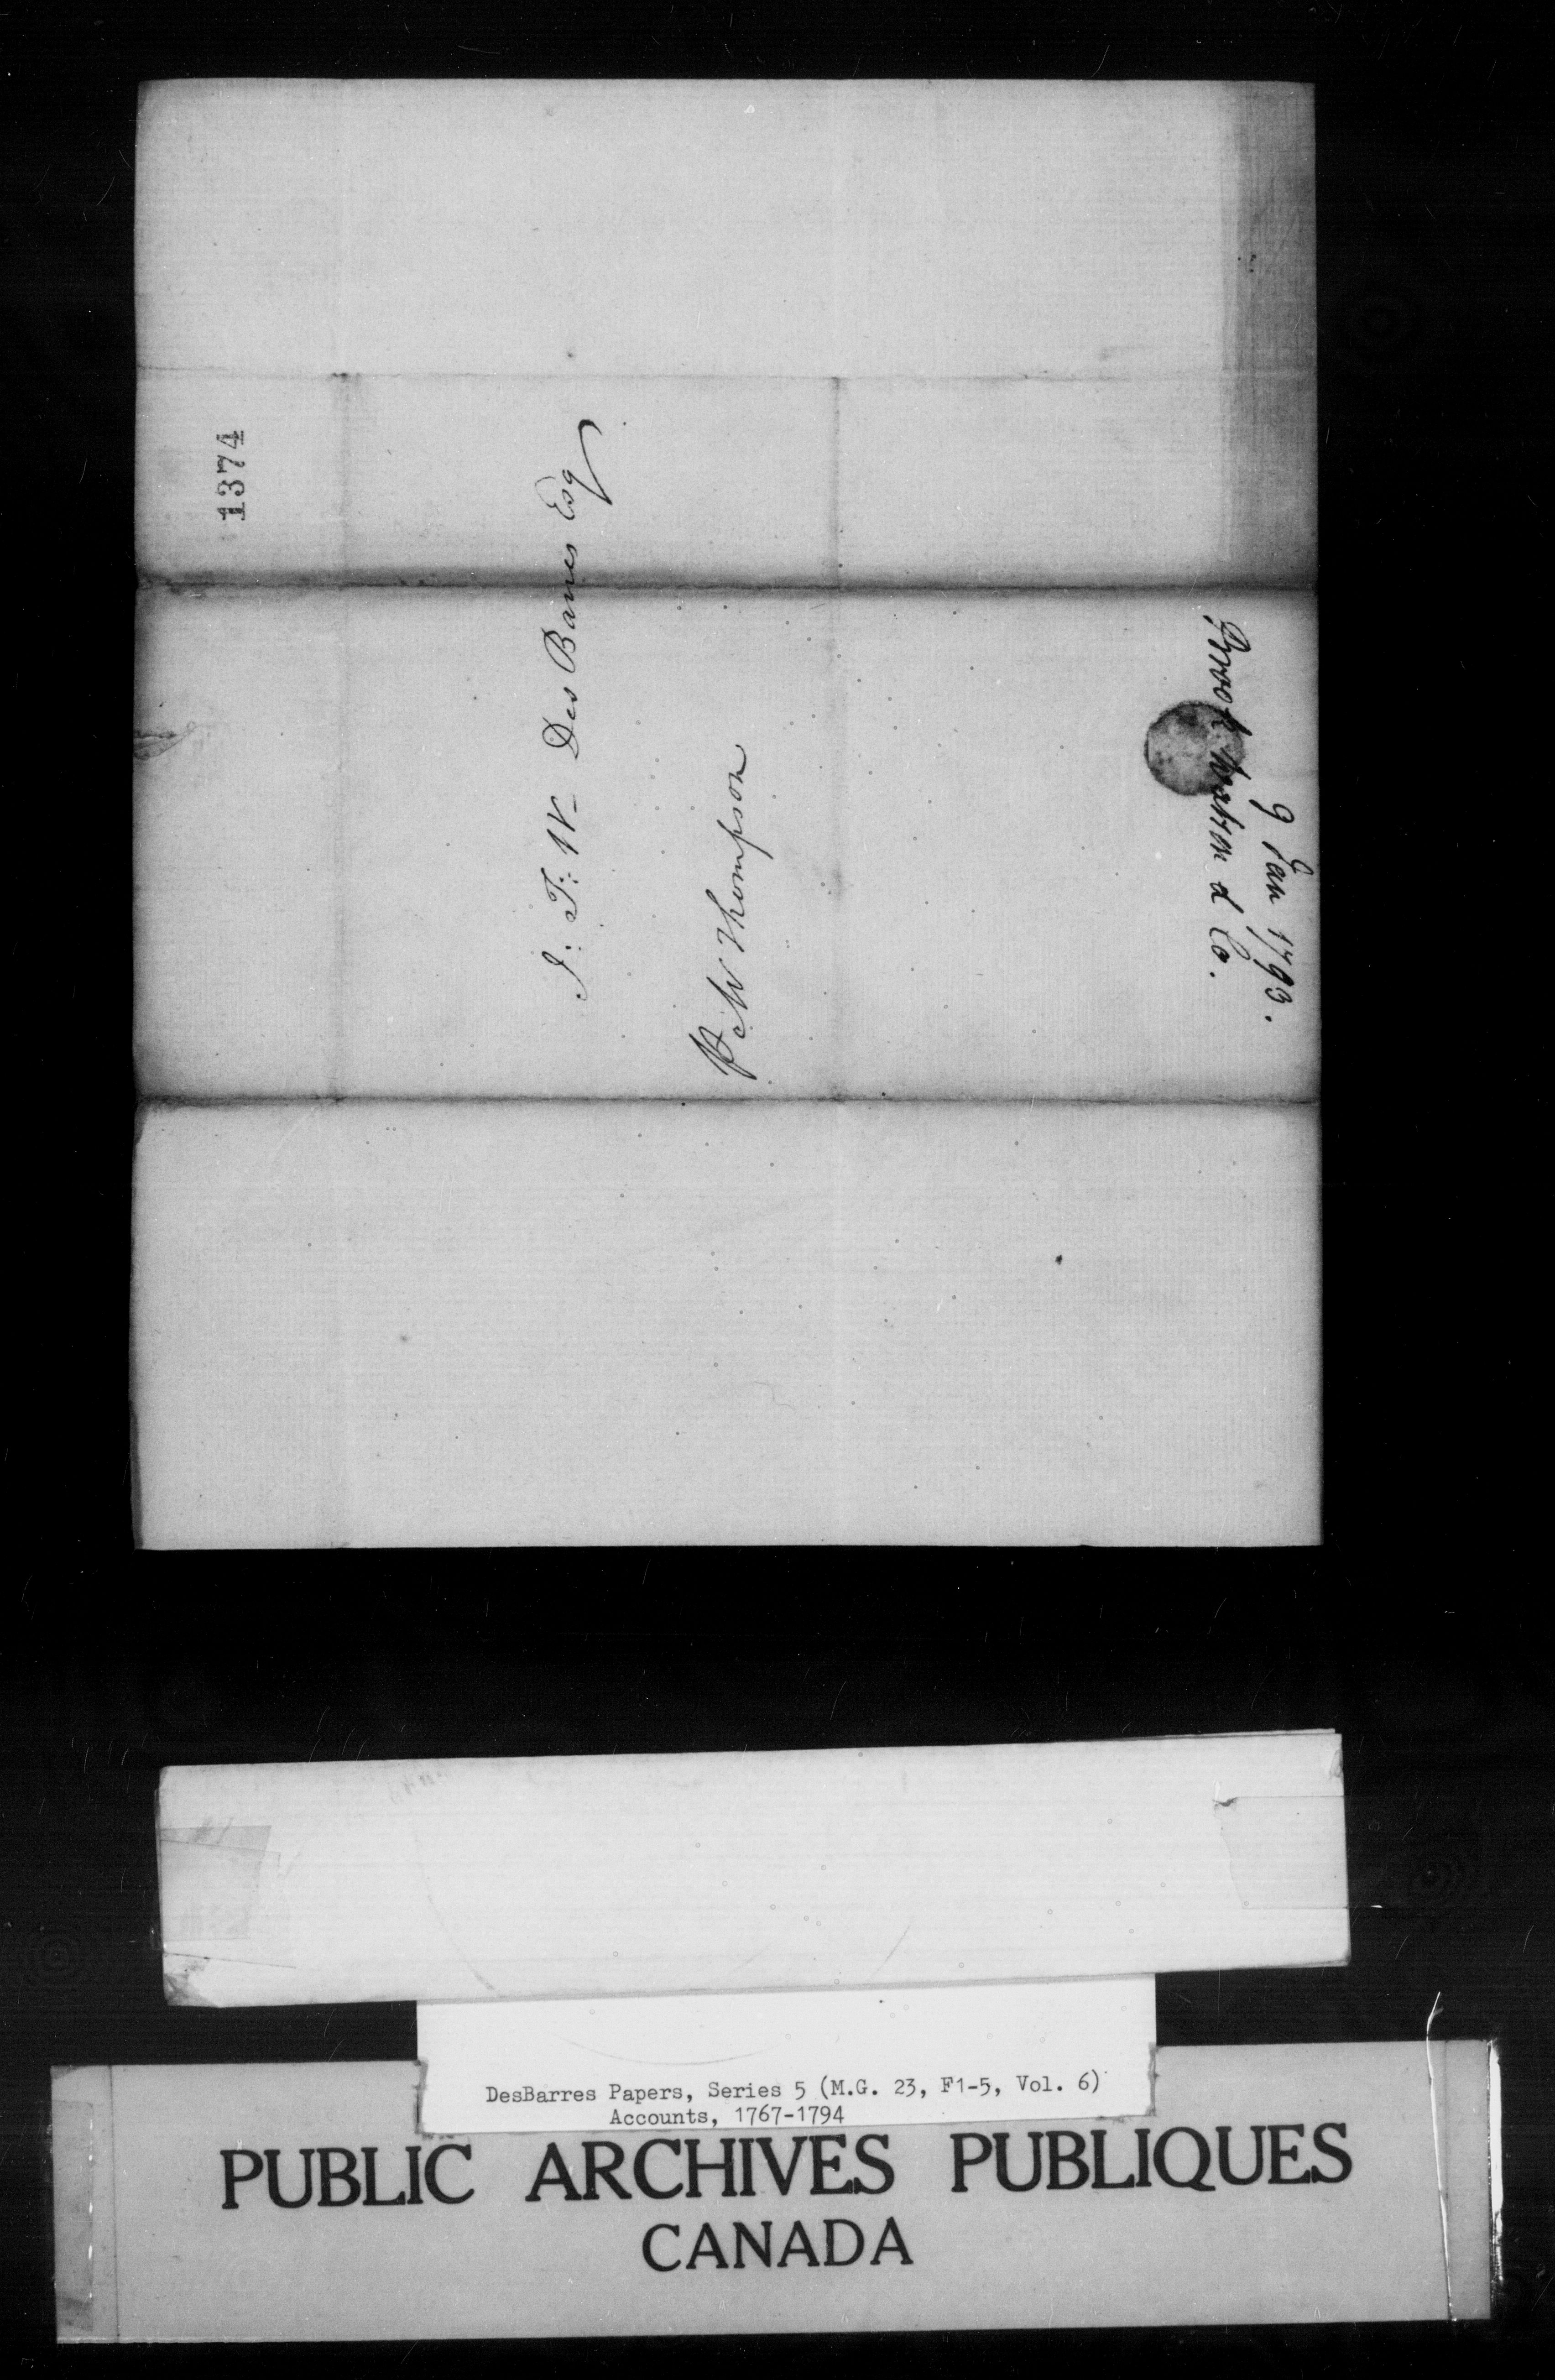 1374
J: F: W- DesBarres Esq
P Mr Thompson
9 Jan 1793.
Brook Watson & Co.
DesBarres Papers, Series 5 (M.G. 23, F1-5, Vol. 6)
Accounts, 1767-1794
PUBLIC ARCHIVES PUBLIQUES
CANADA